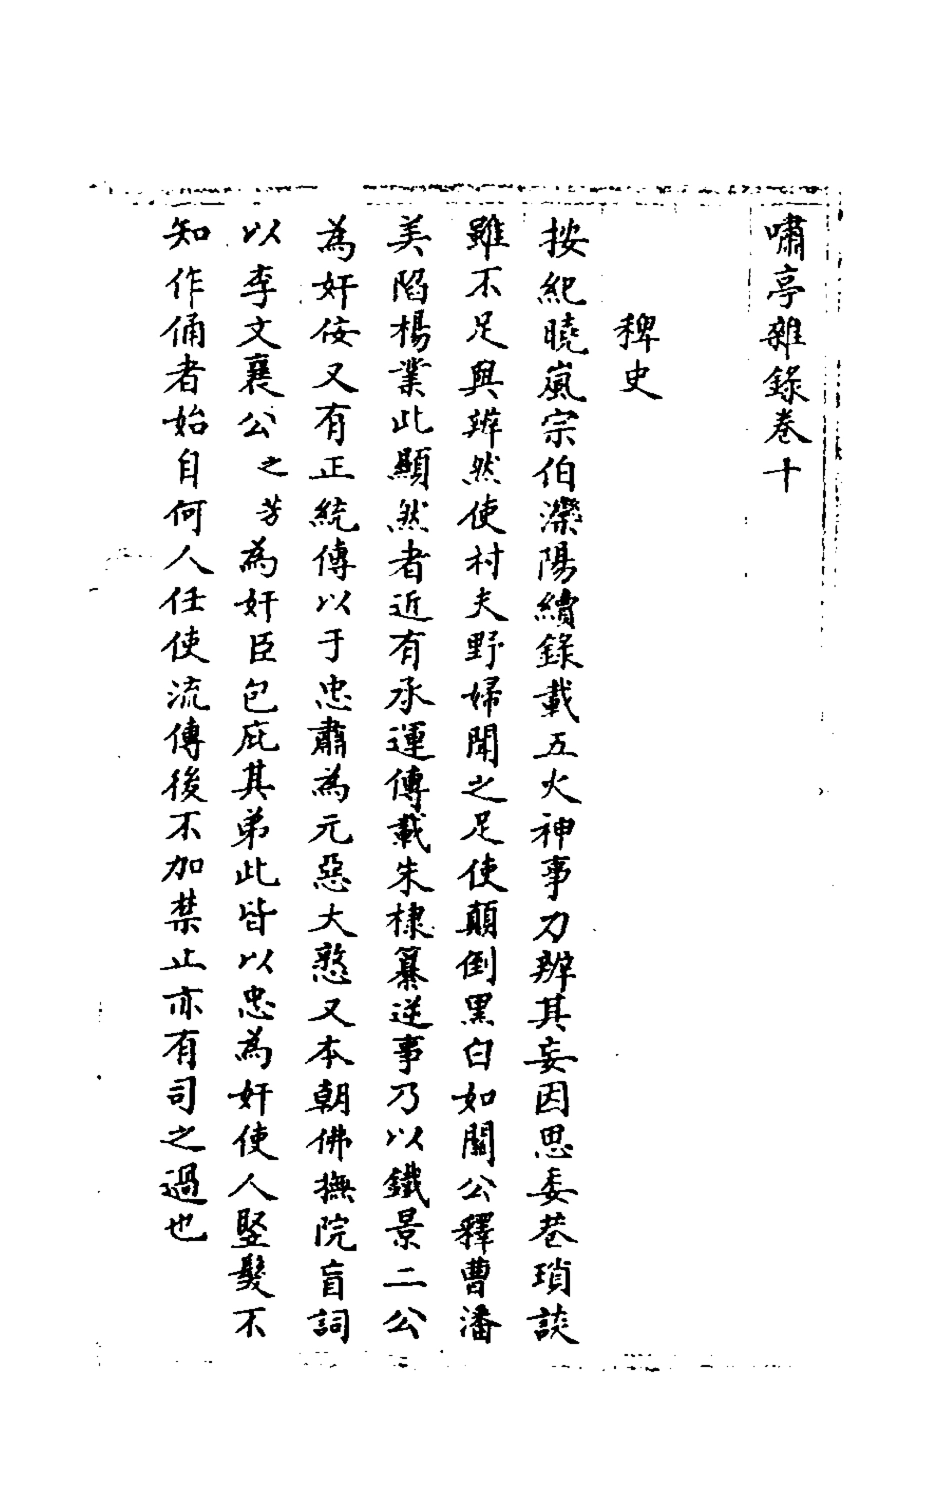 嘯亭雜錄卷十
稗史
按紀曉嵐宗伯灤陽續錄載五火神事力辨其妄因思委巷瑣談
雖不足與辨然使村夫野婦聞之足使顛倒黑白如關公釋曹潘
美陷楊業此顯然者近有承運傳載朱棣篡逆事乃以鐵景二公
為奸佞又有正統傳以于忠肅為元惡大憝又本朝佛撫院盲詞
以李文襄公之芳為奸臣包庇其弟此皆以忠為奸使人竪髮不
知作俑者始自何人任使流傳後不加禁止亦有司之過也